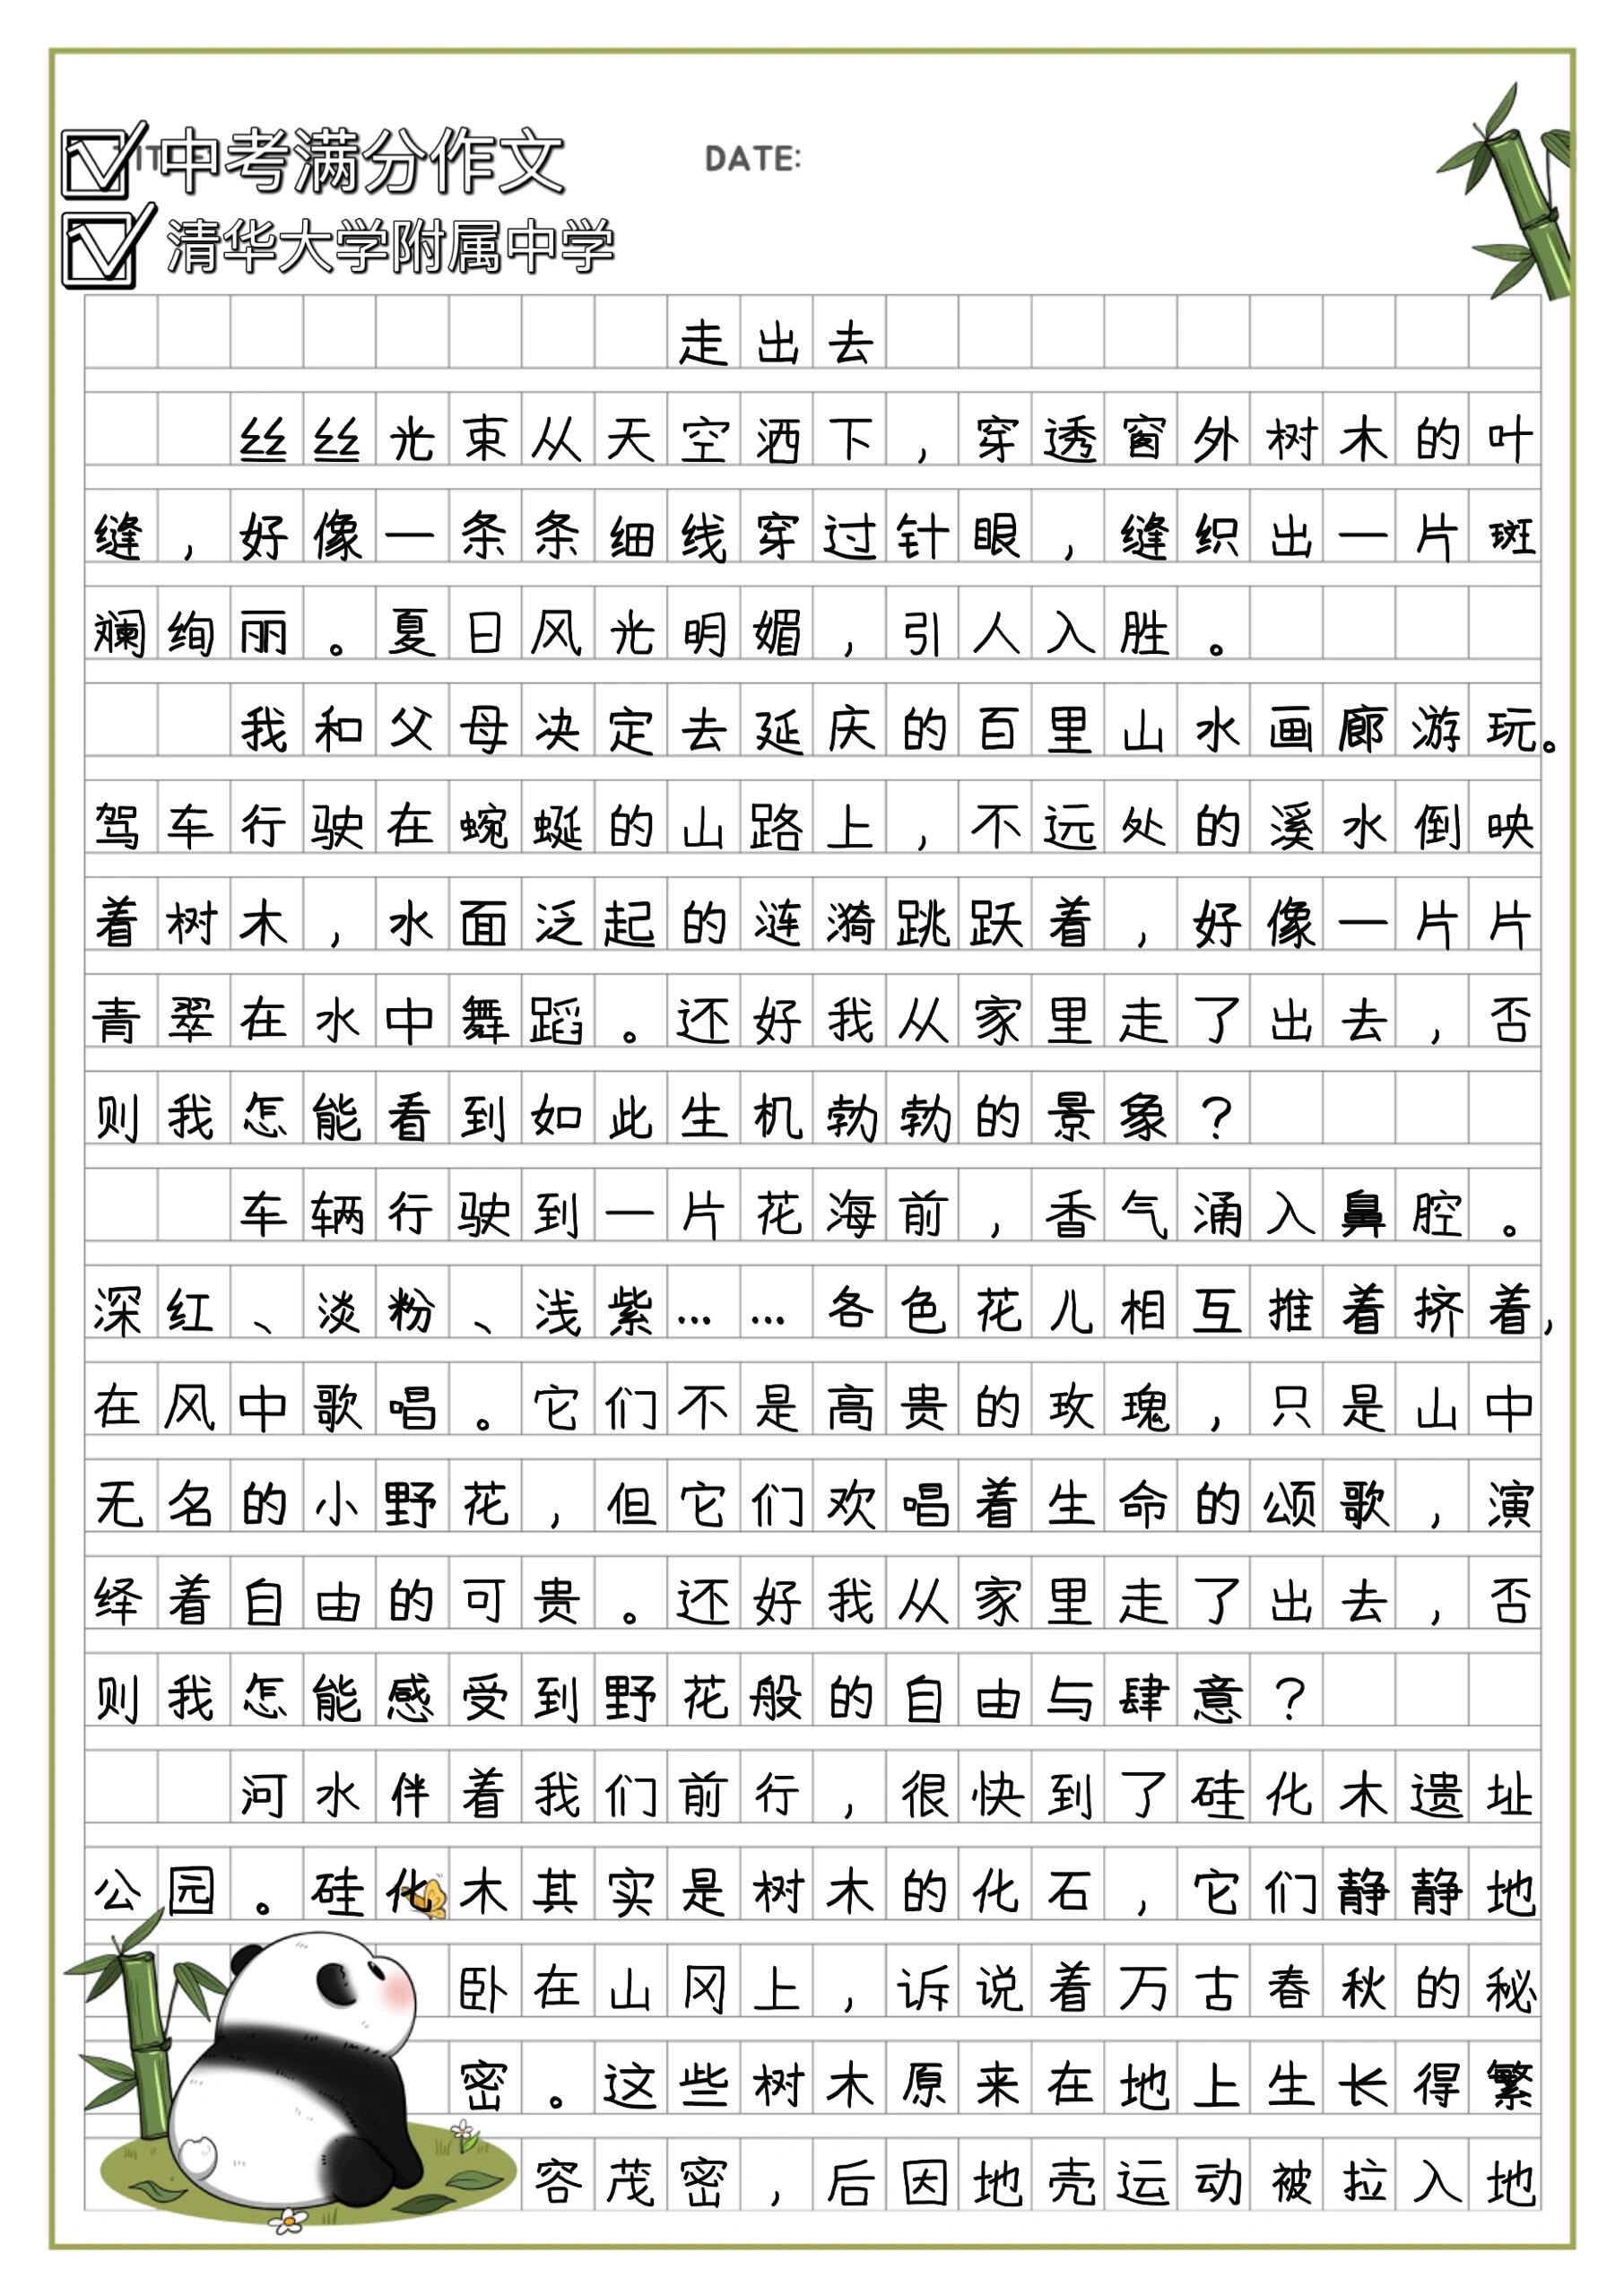 中考满分作文
DATE:
清华大学附属中学
走出去
丝丝光束从天空洒下，穿透窗外树木的叶
缝，好像一条条细线穿过针眼，缝织出一片斑
斓绚丽。夏日风光明媚，引人入胜。
我和父母决定去延庆的百里山水画廊游玩。
驾车行驶在蜿蜒的山路上，不远处的溪水倒映
着树木，水面泛起的涟漪跳跃着，好像一片片
青翠在水中舞蹈。还好我从家里走了出去，否
则我怎能看到如此生机勃勃的景象？
车辆行驶到一片花海前，香气涌入鼻腔。
深红、淡粉、浅紫……各色花儿相互推着挤着，
在风中歌唱。它们不是高贵的玫瑰，只是山中
无名的小野花，但它们欢唱着生命的颂歌，演
绎着自由的可贵。还好我从家里走了出去，否
则我怎能感受到野花般的自由与肆意？
河水伴着我们前行，很快到了硅化木遗址
公园。硅化木其实是树木的化石，它们静静地
卧在山冈上，诉说着万古春秋的秘
密。这些树木原来在地上生长得繁
容茂密，后因地壳运动被拉入地